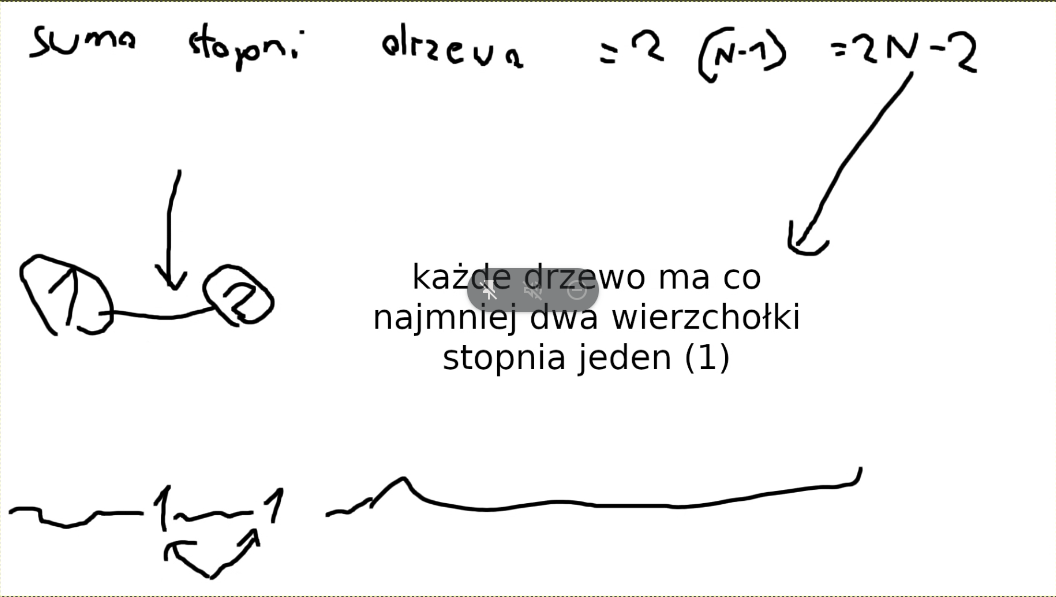 suma stopni drzewa = 2 (N-1) = 2N-2
1 2
każde drzewo ma co
najmniej dwa wierzchołki
stopnia jeden (1)
1 1